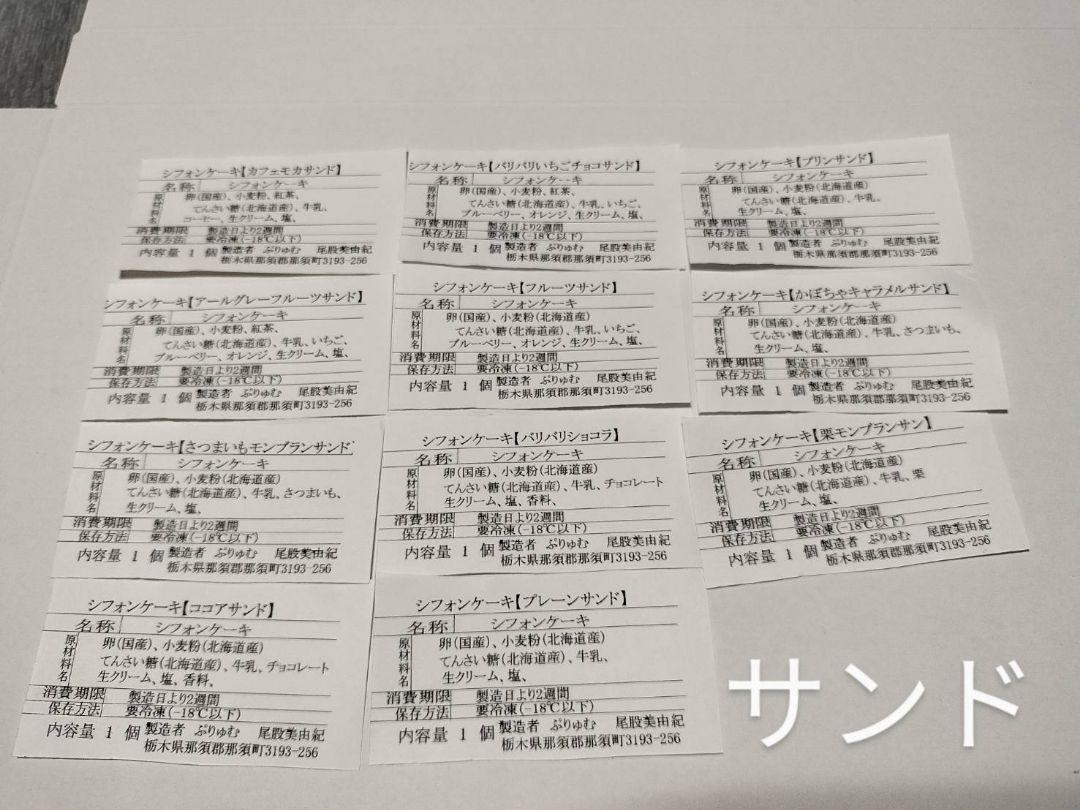 シフォンケーキ【カフェモカサンド】
名称 シフォンケーキ
原材料名 卵(国産)、小麦粉、紅茶、
てんさい糖(北海道産)、牛乳、
コーヒー、生クリーム、塩、
消費期限 製造日より2週間
保存方法 要冷凍(-18℃以下)
内容量 1 個 製造者 ぷりゅむ 尾股美由紀
栃木県那須郡那須町3193-256
シフォンケーキ【パリパリいちごチョコサンド】
名称 シフォンケーキ
原材料名 卵(国産)、小麦粉、紅茶、
てんさい糖(北海道産)、牛乳、いちご、
ブルーベリー、オレンジ、生クリーム、塩、
消費期限 製造日より2週間
保存方法 要冷凍(-18℃以下)
内容量 1 個 製造者 ぷりゅむ 尾股美由紀
栃木県那須郡那須町3193-256
シフォンケーキ【プリンサンド】
名称 シフォンケーキ
原材料名 卵(国産)、小麦粉(北海道産)
てんさい糖(北海道産)、牛乳、
生クリーム、塩、
消費期限 製造日より2週間
保存方法 要冷凍(-18℃以下)
内容量 1 個 製造者 ぷりゅむ 尾股美由紀
栃木県那須郡那須町3193-256
シフォンケーキ【アールグレーフルーツサンド】
名称 シフォンケーキ
原材料名 卵(国産)、小麦粉、紅茶、
てんさい糖(北海道産)、牛乳、いちご、
ブルーベリー、オレンジ、生クリーム、塩、
消費期限 製造日より2週間
保存方法 要冷凍(-18℃以下)
内容量 1 個 製造者 ぷりゅむ 尾股美由紀
栃木県那須郡那須町3193-256
シフォンケーキ【フルーツサンド】
名称 シフォンケーキ
原材料名 卵(国産)、小麦粉(北海道産)
てんさい糖(北海道産)、牛乳、いちご、
ブルーベリー、オレンジ、生クリーム、塩、
消費期限 製造日より2週間
保存方法 要冷凍(-18℃以下)
内容量 1 個 製造者 ぷりゅむ 尾股美由紀
栃木県那須郡那須町3193-256
シフォンケーキ【かぼちゃキャラメルサンド】
名称 シフォンケーキ
原材料名 卵(国産)、小麦粉(北海道産)
てんさい糖(北海道産)、牛乳、さつまいも、
生クリーム、塩、
消費期限 製造日より2週間
保存方法 要冷凍(-18℃以下)
内容量 1 個 製造者 ぷりゅむ 尾股美由紀
栃木県那須郡那須町3193-256
シフォンケーキ【さつまいもモンブランサンド】
名称 シフォンケーキ
原材料名 卵(国産)、小麦粉(北海道産)
てんさい糖(北海道産)、牛乳、さつまいも、
生クリーム、塩、
消費期限 製造日より2週間
保存方法 要冷凍(-18℃以下)
内容量 1 個 製造者 ぷりゅむ 尾股美由紀
栃木県那須郡那須町3193-256
シフォンケーキ【パリパリショコラ】
名称 シフォンケーキ
原材料名 卵(国産)、小麦粉(北海道産)
てんさい糖(北海道産)、牛乳、チョコレート
生クリーム、塩、香料、
消費期限 製造日より2週間
保存方法 要冷凍(-18℃以下)
内容量 1 個 製造者 ぷりゅむ 尾股美由紀
栃木県那須郡那須町3193-256
シフォンケーキ【栗モンブランサン】
名称 シフォンケーキ
原材料名 卵(国産)、小麦粉(北海道産)
てんさい糖(北海道産)、牛乳、栗
生クリーム、塩、
消費期限 製造日より2週間
保存方法 要冷凍(-18℃以下)
内容量 1 個 製造者 ぷりゅむ 尾股美由紀
栃木県那須郡那須町3193-256
シフォンケーキ【ココアサンド】
名称 シフォンケーキ
原材料名 卵(国産)、小麦粉(北海道産)
てんさい糖(北海道産)、牛乳、チョコレート
生クリーム、塩、香料、
消費期限 製造日より2週間
保存方法 要冷凍(-18℃以下)
内容量 1 個 製造者 ぷりゅむ 尾股美由紀
栃木県那須郡那須町3193-256
シフォンケーキ【プレーンサンド】
名称 シフォンケーキ
原材料名 卵(国産)、小麦粉(北海道産)
てんさい糖(北海道産)、牛乳、
生クリーム、塩、
消費期限 製造日より2週間
保存方法 要冷凍(-18℃以下)
内容量 1 個 製造者 ぷりゅむ 尾股美由紀
栃木県那須郡那須町3193-256
サンド